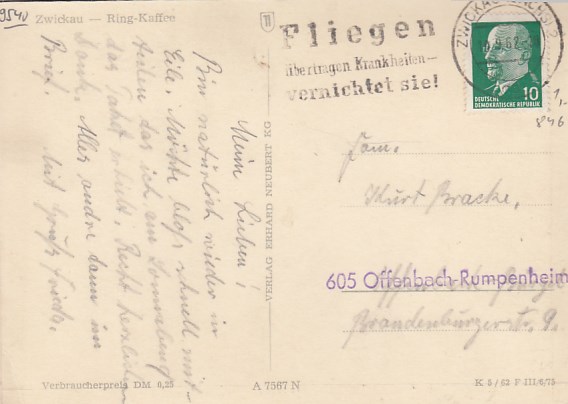 954N
Zwickau — Ring-Kaffee
Meine Lieben!
Bin natürlich wieder in
Eile. Möchte bloß schnell mit-
teilen das ich am Sonnabend
das Paket erhielt. Recht herzlichen
Dank. Alles andre dann im
Brief. Mit Gruß Frieda.
VERLAG ERHARD NEUBERT KG
Verbraucherpreis DM 0,25
A 7567 N
K 5/62 F III/6/75
Fliegen
übertragen Krankheiten—
vernichtet sie!
ZWICKAU
9.62
10
DEUTSCHE
DEMOKRATISCHE REPUBLIK
1,-
846
Fam.
Kurt Bracke,
605 Offenbach-Rumpenheim
Brandenburgerstr. 9.